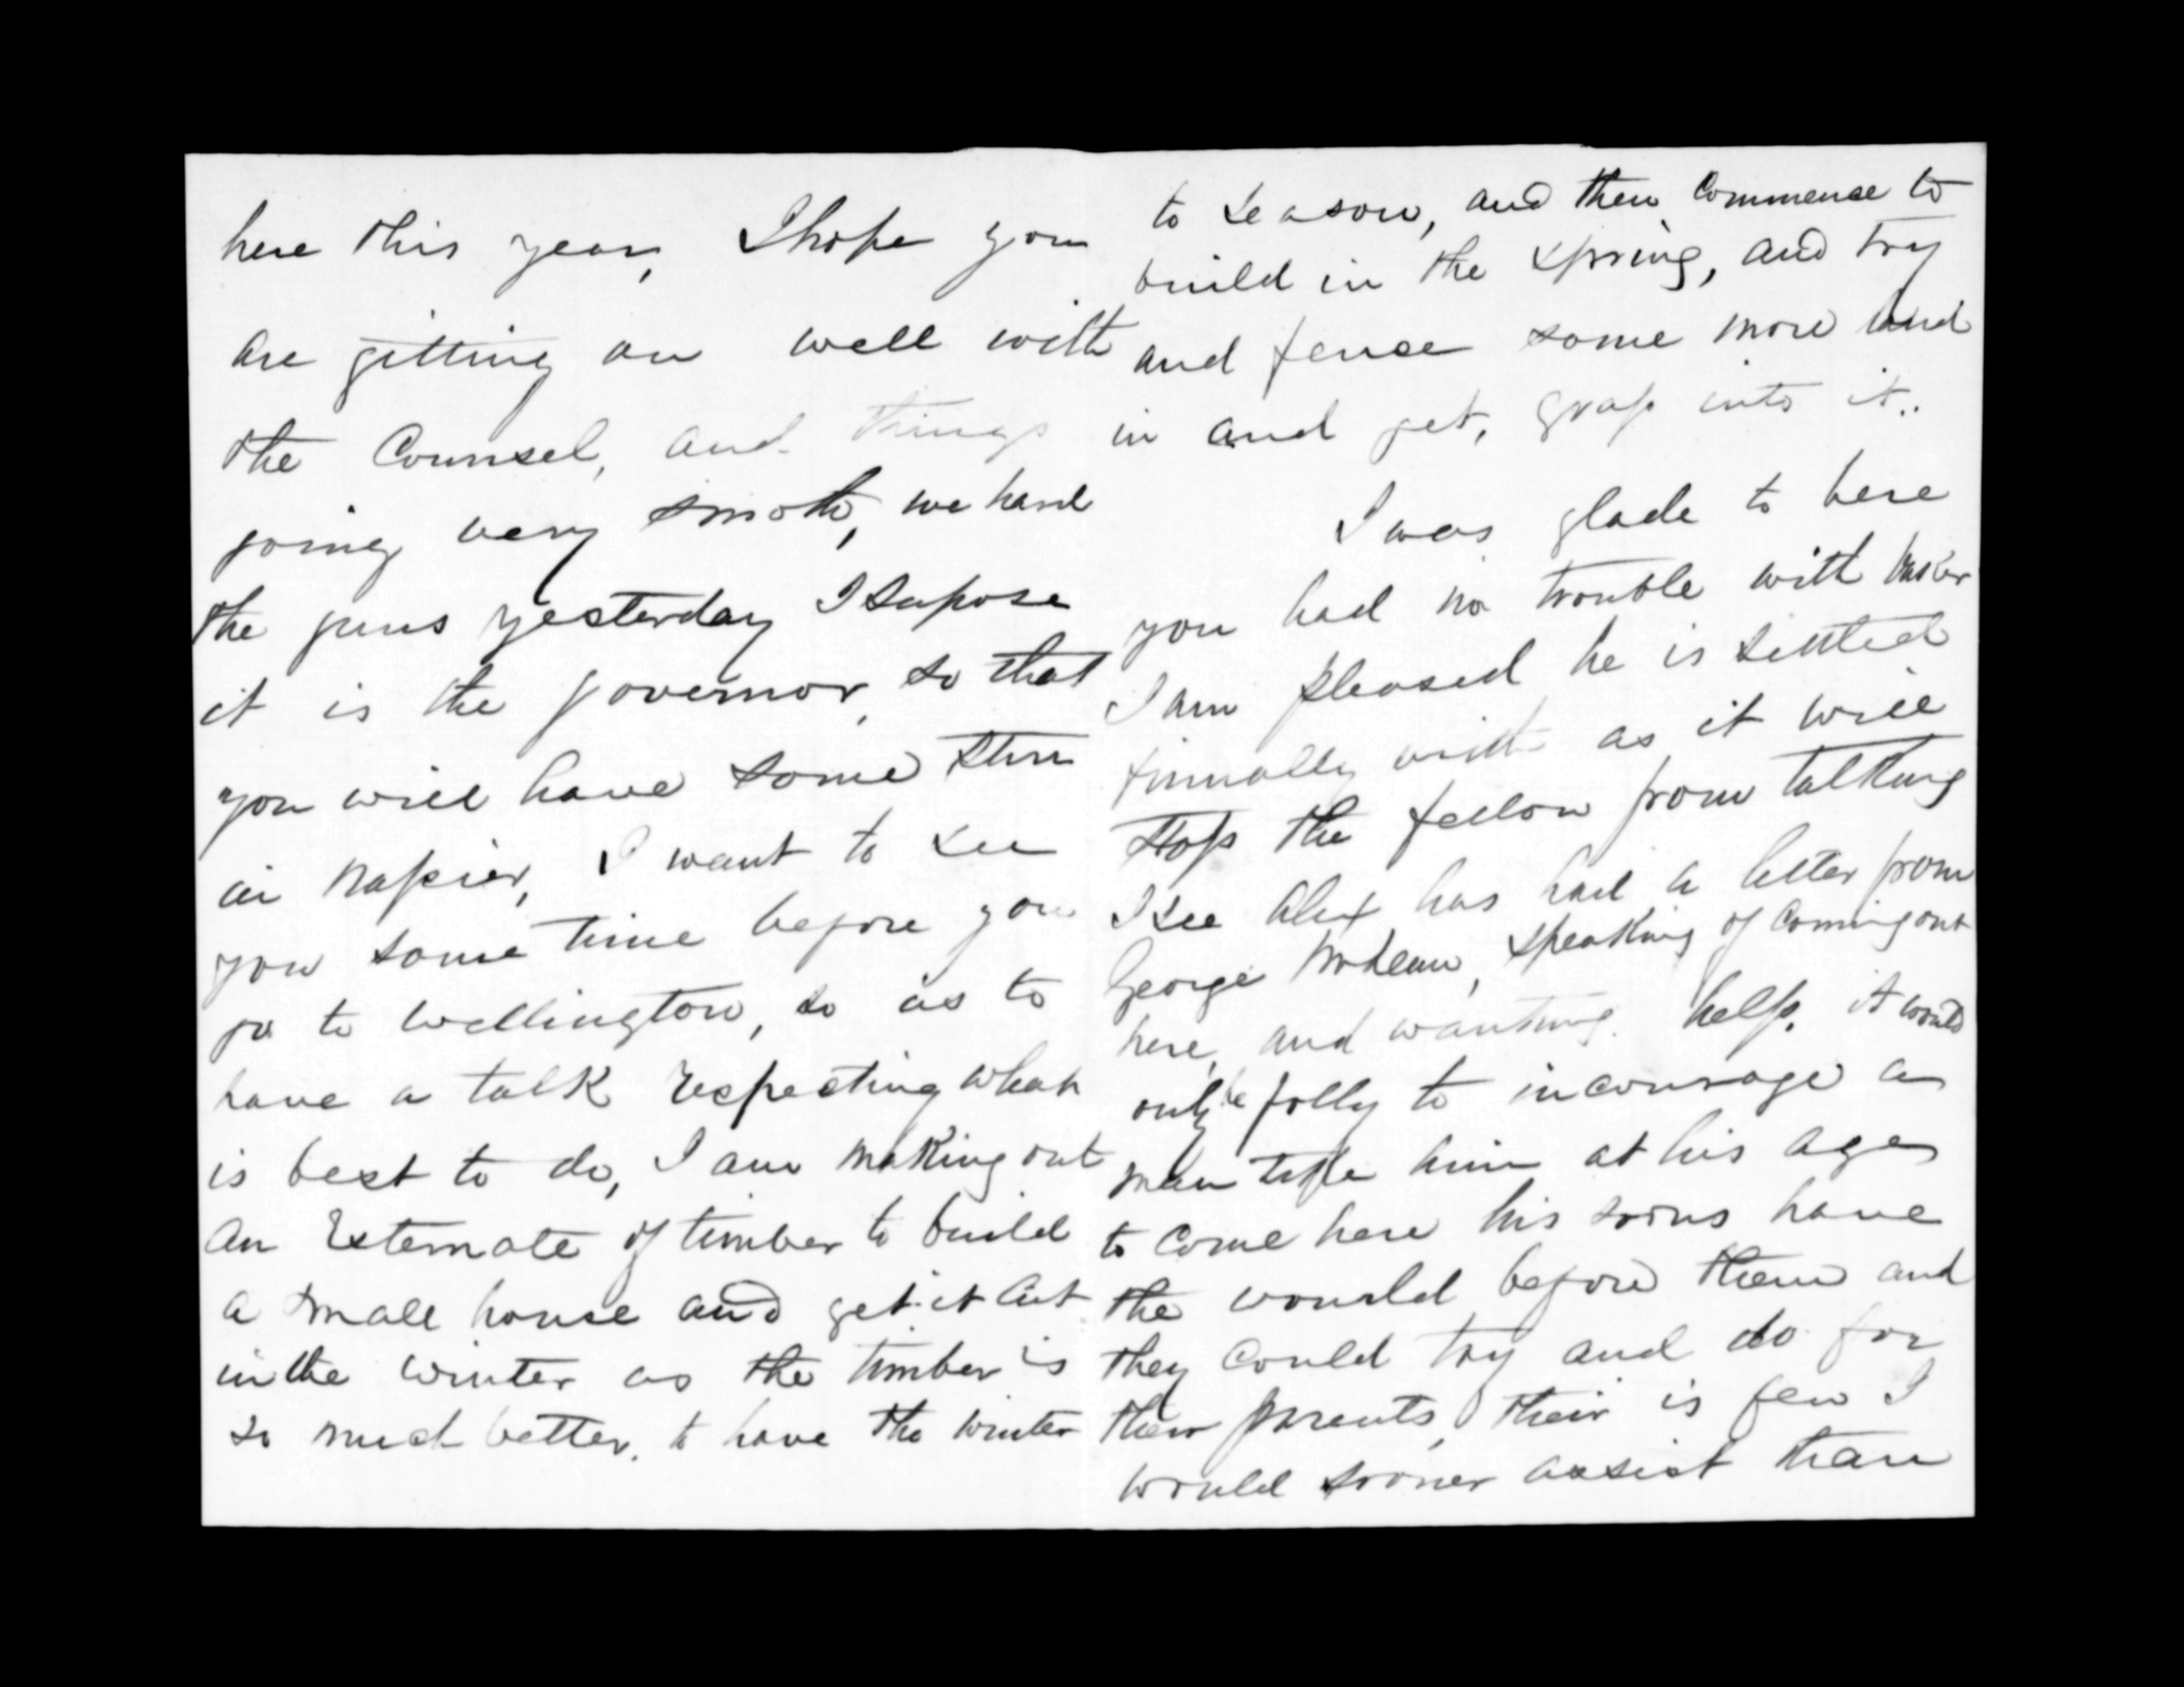 here this year, I hope you
are gitting on well with
the Counsel, and things
going very smoth, we hard
the guns yesterday I supose
it is the governor, so that
you will have some stir
in Napier, I want to see
you some time before you
go to Wellington, so as to
have a talk respecting what
is best to do, I am making out
an Estemate of timber to build
a small house and get it cut
in the winter as the timber is
so much better, to have the winter
to season, and then Commence to
build in the spring, and try
and fence some more land
in and get, grass into it..
I was glade to here
you had no trouble with
I am pleased he is sittled
finnally with as it will
stop the fellow from talking
I see Alex has had a letter from
George McLean, speaking of Coming out
here, and wanting help, it would
only be folly to incourage a
man like him at his age
to come here his sons have
the would before them and
they could try and do for
their parents, their is few I
would sooner assist than